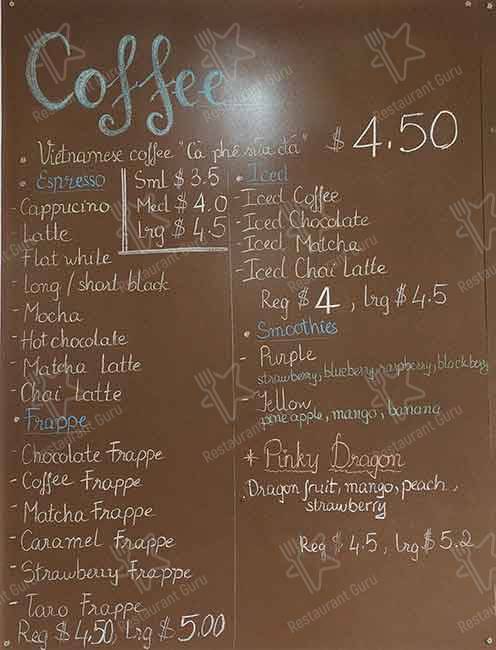 Coffee
• Vietnamese coffee "Cà phê sữa đá" $ 4.50
• Espresso
Sml $ 3.5
Med $ 4.0
Lrg $ 4.5
- Cappucino
- Latte
- Flat while
- Long / short black
- Mocha
- Hot chocolate
- Matcha Latte
- Chai Latte
• Frappe
- Chocolate Frappe
- Coffee Frappe
- Matcha Frappe
- Caramel Frappe
- Strawberry Frappe
- Taro Frappe
Reg $ 4,50, Lrg $ 5.00
• Iced
- Iced Coffee
- Iced Chocolate
- Iced Matcha
- Iced Chai Latte
Reg $ 4 , Lrg $ 4.5
• Smoothies
- Purple
strawberry, blueberry, raspberry, blackberry
- Yellow
pine apple, mango, banana
* Pinky Dragon
Dragon fruit, mango, peach,
strawberry
Reg $ 4.5, Lrg $ 5.2
Restaurant Guru